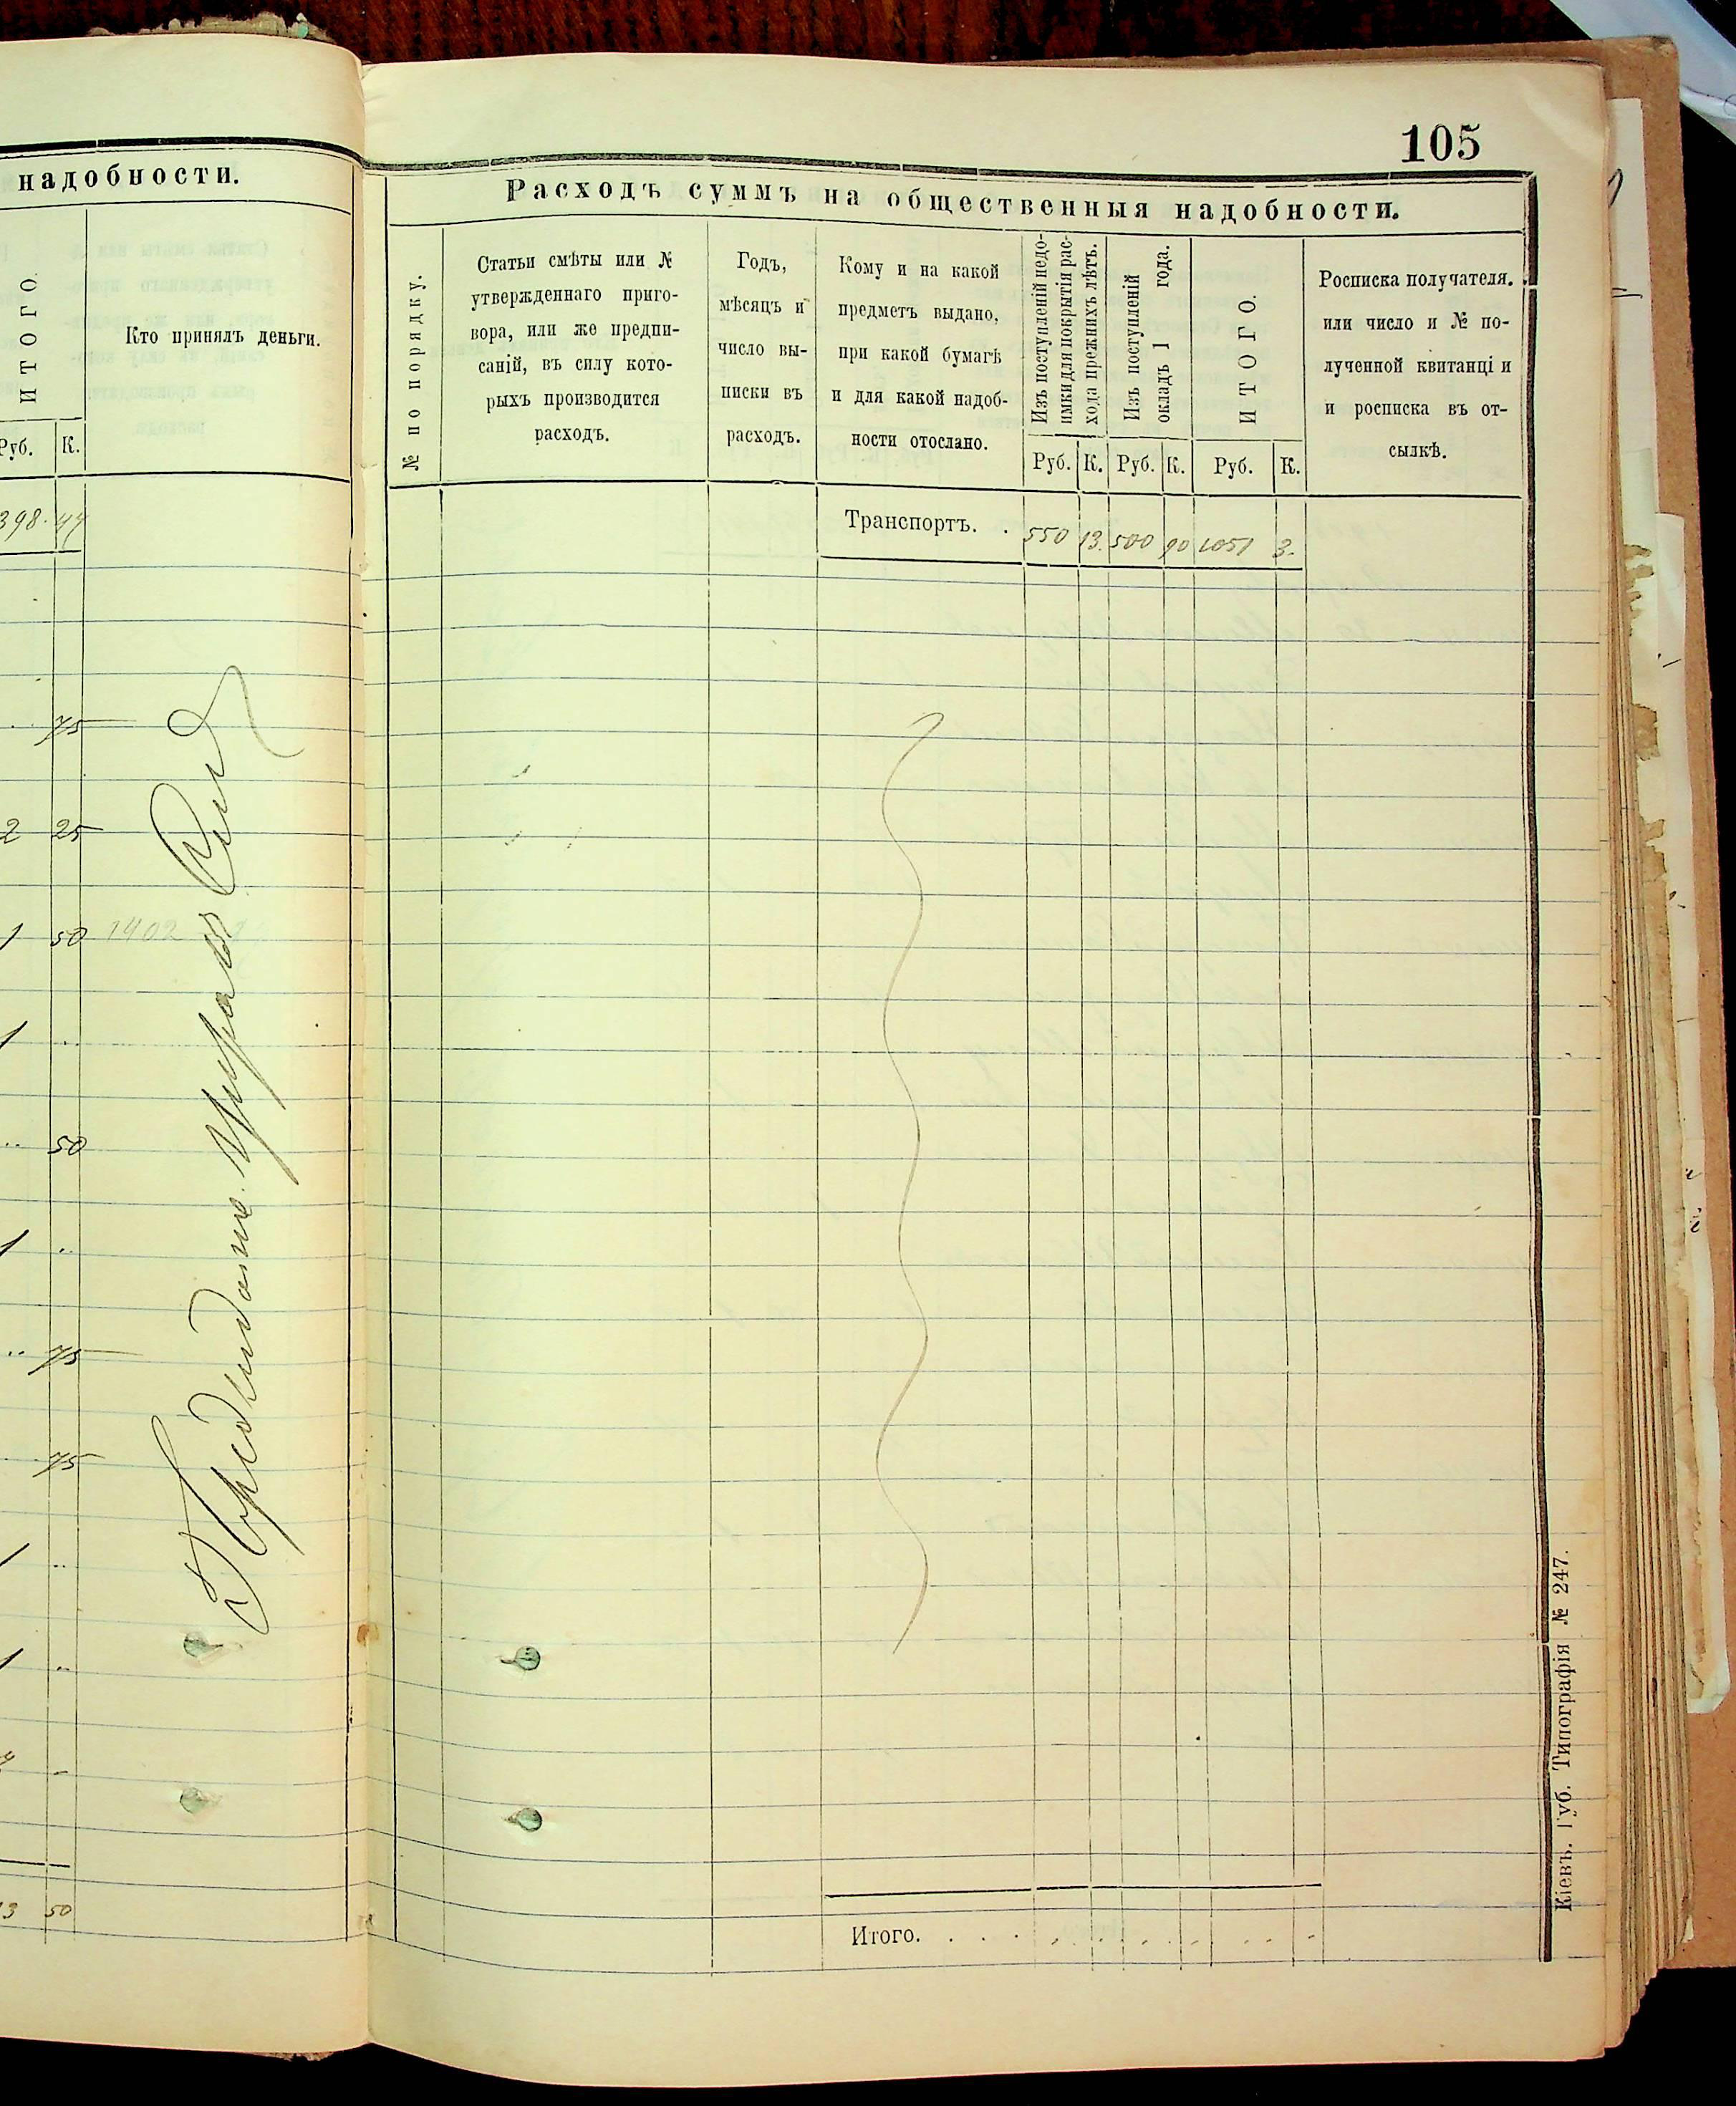 105
надобности.
ИТОГО.
Кто принялъ деньги.
Руб. К.
398. 44
75
2 25
1 50 1402
1 ..
.. 50
1 ..
.. 75
75
1 ..
1 ..
-
3 50
Расходъ суммъ на общественныя надобности.
№ по порядку.
Статьи смѣты или №
утвержденнаго приго-
вора, или же предпи-
саній, въ силу кото-
рыхъ производится
расходъ.
Годъ,
мѣсяцъ и
число вы-
писки въ
расходъ.
Кому и на какой
предметъ выдано,
при какой бумагѣ
и для какой надоб-
ности отослано.
Изъ поступленій недо-
имки для покрытія рас-
хода прежнихъ лѣтъ.
Изъ поступленій
окладъ 1 года.
ИТОГО.
Росписка получателя.
или число и № по-
лученной квитанціи
и росписка въ от-
сылкѣ.
Руб. К. Руб. К. Руб. К.
Транспортъ. . 550 13. 500 90 1051 3.
Итого. . . . . . . . . . . . .
Кіевъ. Губ. Типографія № 247.